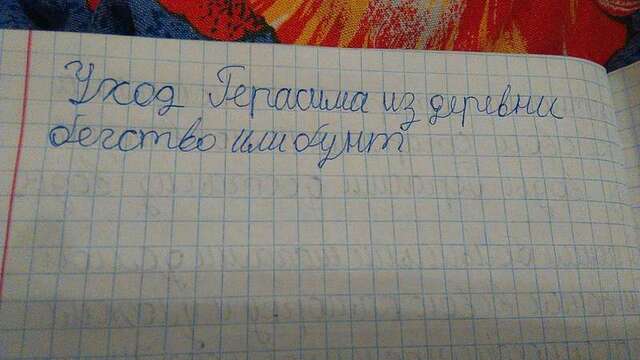 Уход Герасима из деревни
бегство или бунт